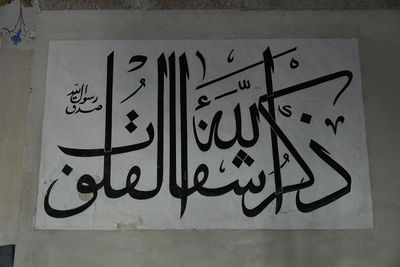 ذكر الله شفاء القلوب
صدق رسول الله